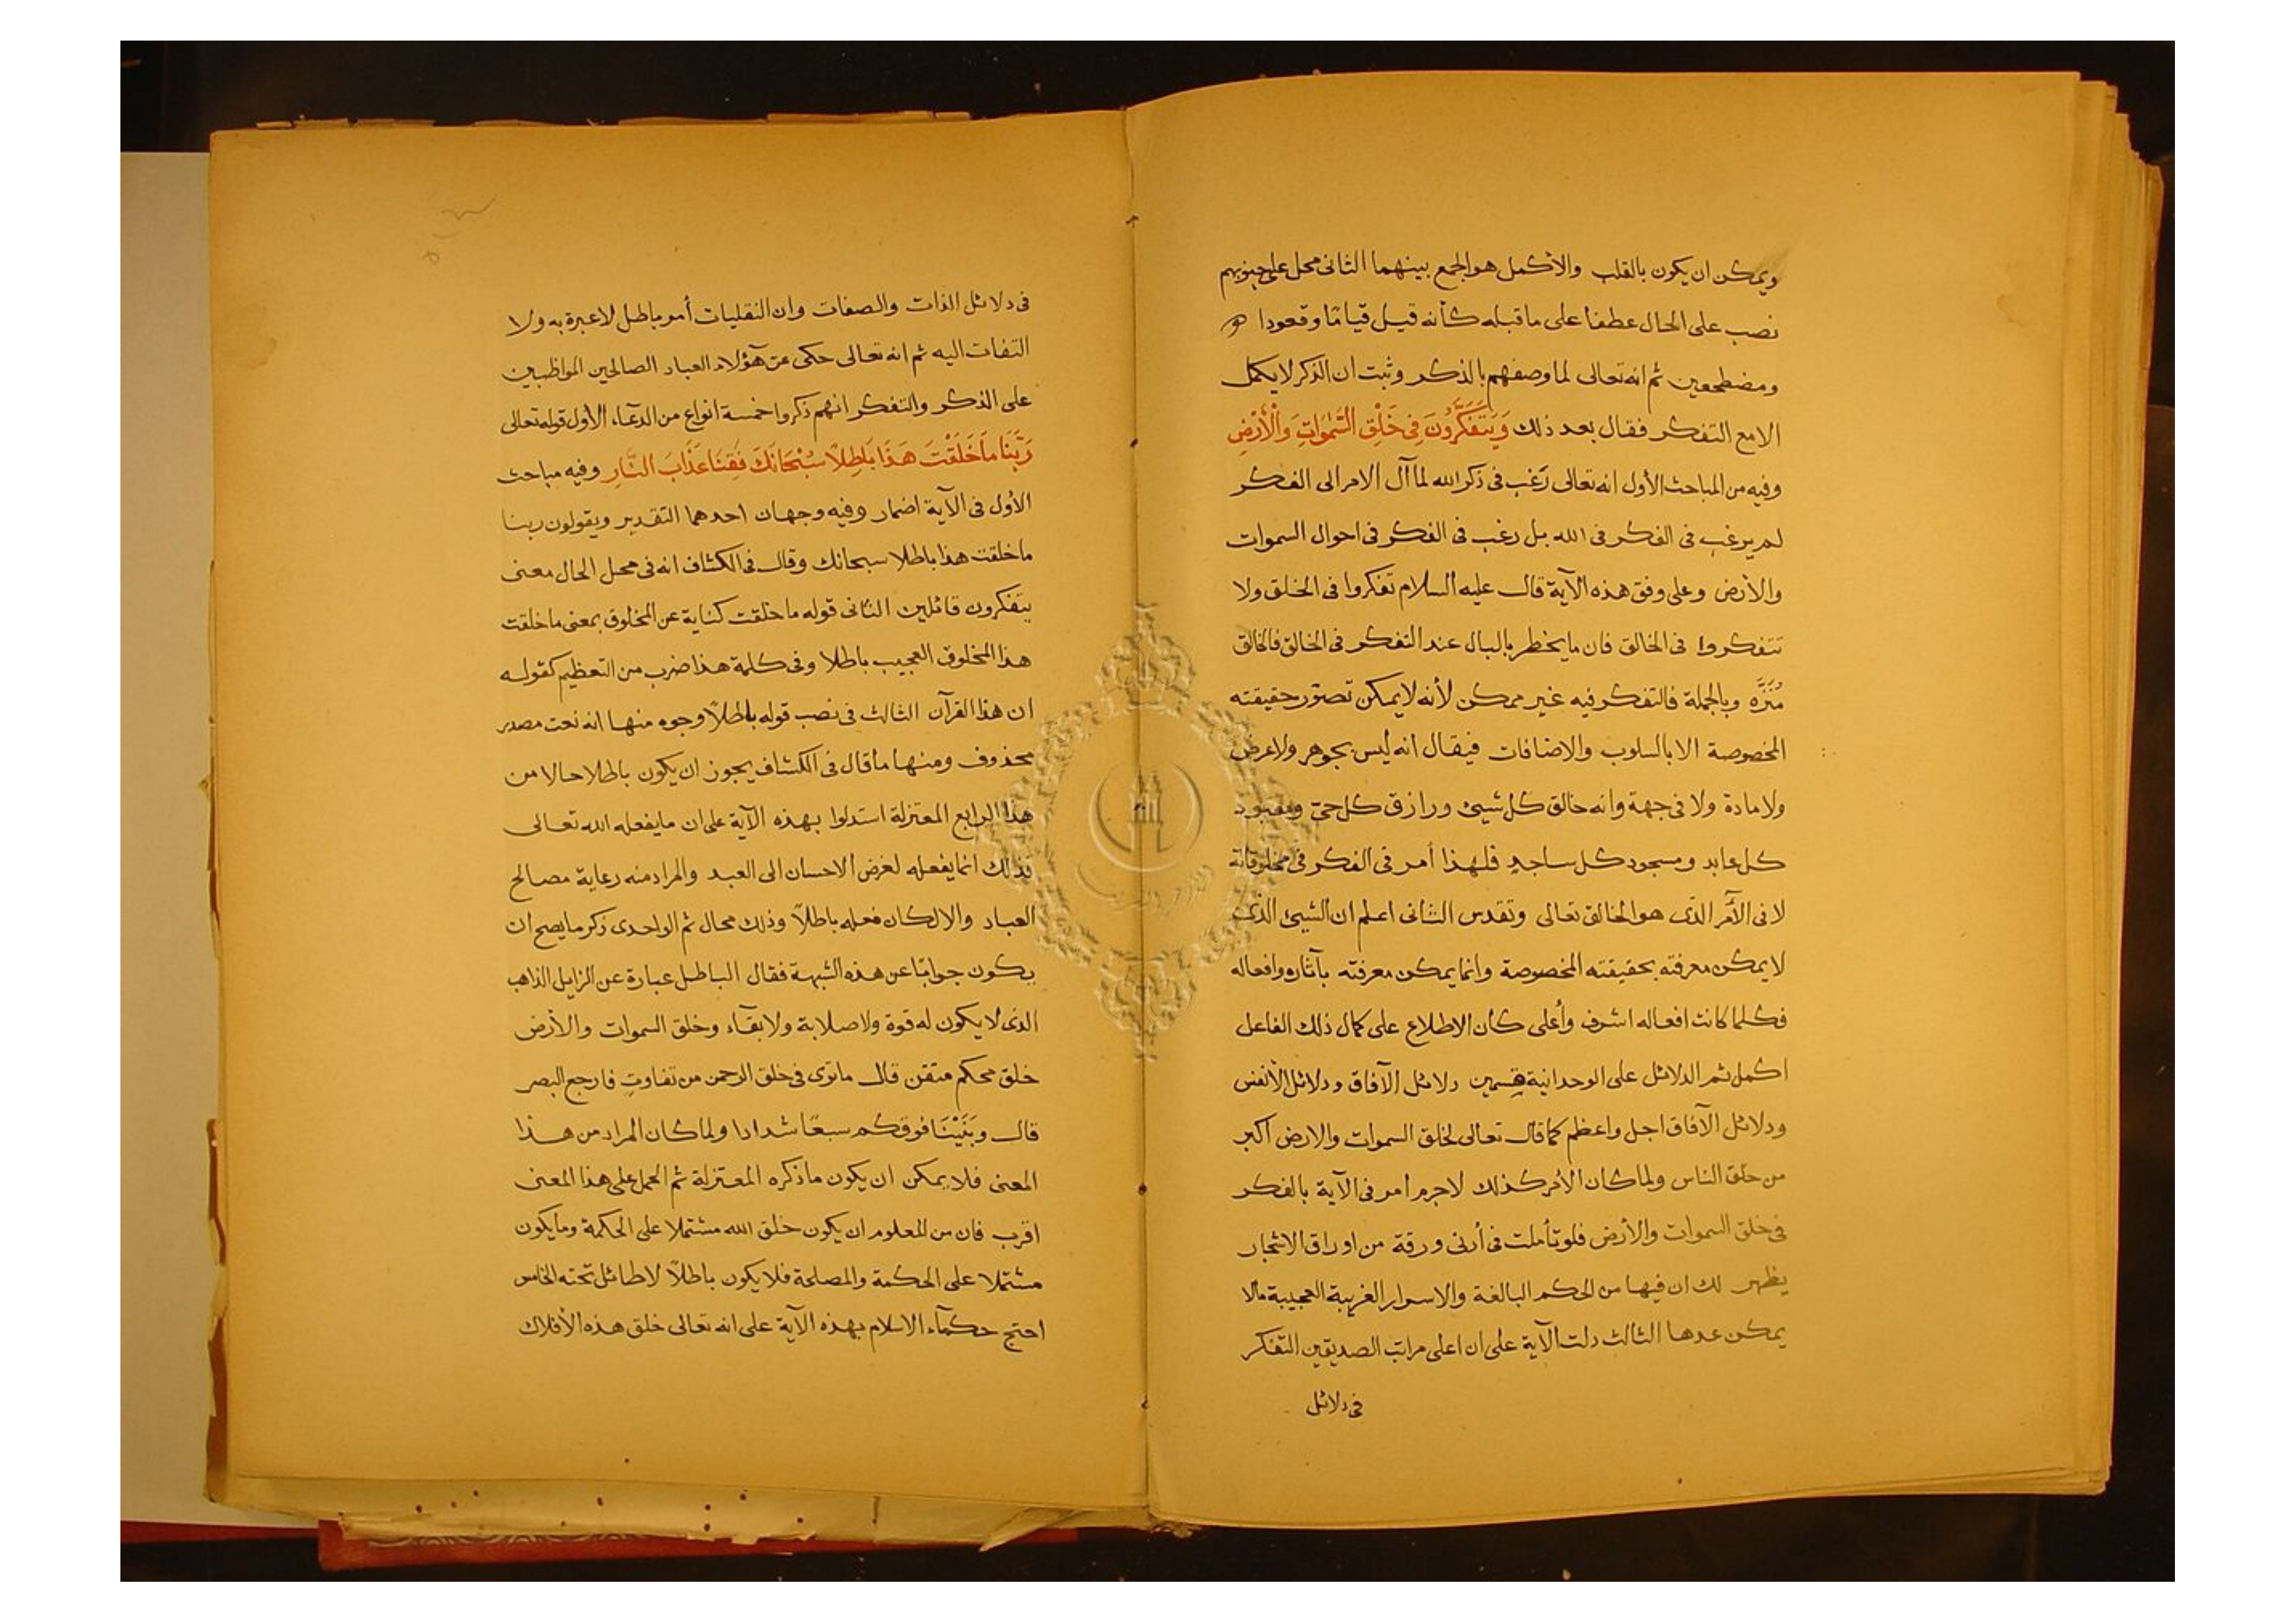 ويمكن ان يكون بالقلب والأكمل هو الجمع بينهما الثانى محل على جنوبهم
نصب على الحال عطفا على ما قبله كأنه قيل قيامًا وقعودا
ومضطجعين ثم انه تعالى لما وصفهم بالذكر وثبت ان الذكر لا يكمل
الا مع التفكر فقال بعد ذلك وَيَتَفَكَّرُونَ فِى خَلْقِ السَّمٰوَاتِ وَالْأَرْضِ
وفيه من المباحث الأول انه تعالى رَغب فى ذكر الله لما آل الامر الى الفكر
لم يرغب فى الفكر فى الله بل رغب فى الفكر فى احوال السموات
والأرض وعلى وفق هذه الآية قال عليه السلام تفكروا فى الخلق ولا
تتفكروا فى الخالق فان ما يخطر بالبال عند التفكر فى الخالق فالخالق
مُنَزَّه وبالجملة فالتفكر فيه غير ممكن لأنه لا يمكن تصوّر حقيقته
المخصوصة الا بالسلوب والاضافات فيقال انه ليس بجوهر ولا عرض
ولا مادة ولا فى جهة وانه خالق كل شيئ ورازق كل حىّ ومعبود
كل عابد ومسجود كل ساجدٍ فلهذا أمر فى الفكر فى مخلوقاته
لا فى الآمر الذى هو الخالق تعالى وتقدس الثانى اعلم ان الشيئ الذى
لا يمكن معرفته بحقيقته المخصوصة وانما يمكن معرفته بآثاره وافعاله
فكلما كانت افعاله اشرف وأعلى كان الاطلاع على كمال ذلك الفاعل
اكمل ثم الدلائل على الوحدانية قسمين دلائل الآفاق ودلائل الأنفس
ودلائل الآفاق اجل واعظم كما قال تعالى لخلق السموات والارض اكبر
من خلق الناس ولما كان الأمر كذلك لا جرم امر فى الآية بالفكر
فى خلق السموات والأرض فلو تأملت فى أدنى ورقة من اوراق الاشجار
يظهر لك ان فيها من الحكم البالغة والاسرار الغريبة العجيبة مالا
يمكن عدها الثالث دلت الآية على ان اعلى مراتب الصديقين التفكر
فى دلائل
فى دلائل الذات والصفات وان النقليات أمر باطل لا عبرة به ولا
التفات اليه ثم انه تعالى حكى عن هؤلاء العباد الصالحين المواظبين
على الذكر والتفكر انهم ذكروا خمسة انواع من الدعآء الأول قوله تعالى
رَبَّنَا مَا خَلَقْتَ هَذَا بَاطِلًا سُبْحَانَكَ فَقِنَا عَذَابَ النَّارِ وفيه مباحث
الأول فى الآية اضمار وفيه وجهان احدهما التقدير ويقولون ربنا
ما خلقت هذا باطلا سبحانك وقال فى الكشاف انه فى محل الحال معنى
يتفكرون قائلين الثانى قوله ما خلقت كناية عن المخلوق بمعنى ما خلقت
هذا المخلوق العجيب باطلا وفى كلمة هذا ضرب من التعظيم كقوله
ان هذا القرآن الثالث فى نصب قوله باطلًا وجوه منها انه نعت مصدر
محذوف ومنها ما قال فى الكشاف يجوز ان يكون باطلا حالا من
هذا الرابع المعتزلة استدلوا بهذه الآية على ان ما يفعله الله تعالى
فذلك انما يفعله لغرض الاحسان الى العبد والمراد منه رعاية مصالح
العباد والا لكان فعله باطلًا وذلك محال ثم الواحدى ذكر ما يصح ان
يكون جوابًا عن هذه الشبهة فقال الباطل عبارة عن الزايل الذاهب
الذى لا يكون له قوة ولا صلابة ولا بقآء وخلق السموات والأرض
خلق محكم متقن قال ما ترى فى خلق الرحمن من تفاوتٍ فارجع البصر
قال وَبَنَيْنَا فوقكم سبعًا شدادا ولما كان المراد من هذا
المعنى فلا يمكن ان يكون ما ذكره المعتزلة ثم الحمل على هذا المعنى
اقرب فان من المعلوم ان يكون خلق الله مشتملا على الحكمة وما يكون
مشتملا على الحكمة والمصلحة فلا يكون باطلًا لا طائل تحته الخامس
احتج حكمآء الاسلام بهذه الآية على انه تعالى خلق هذه الأفلاك